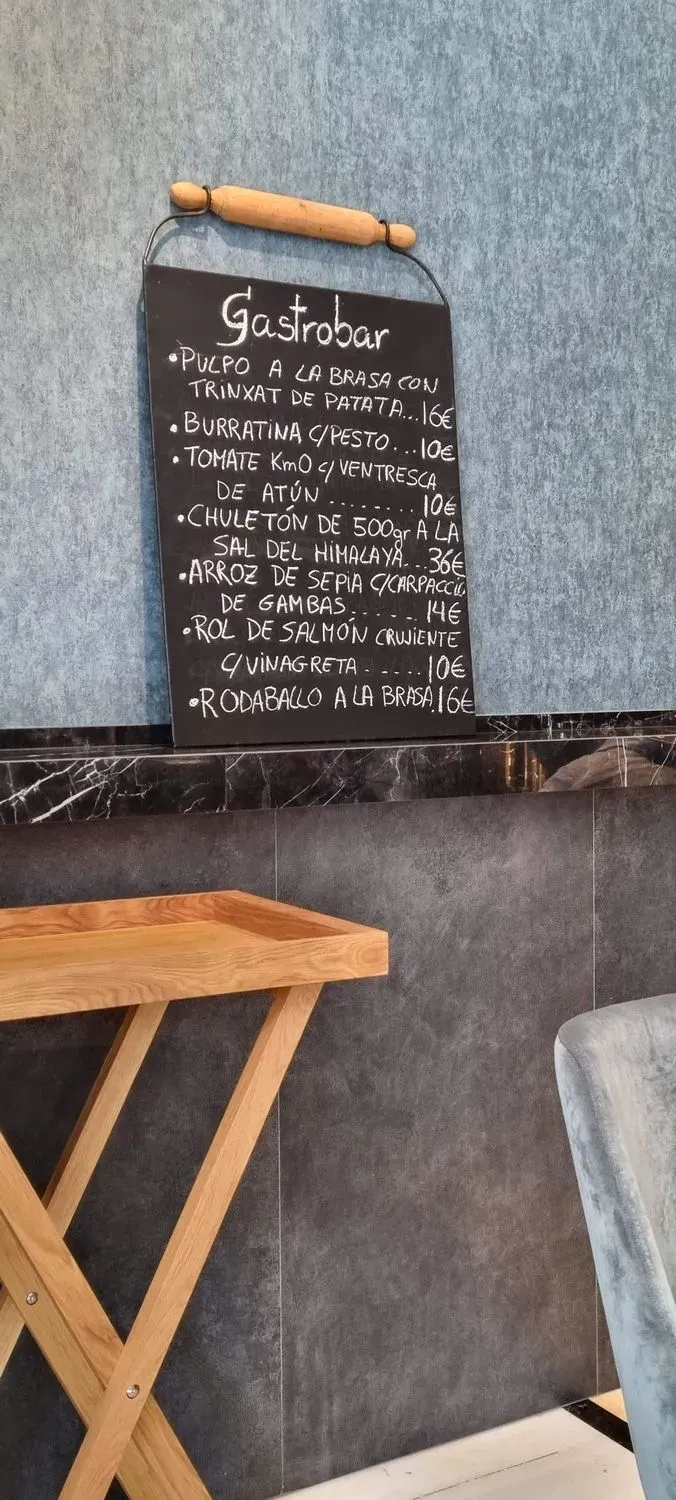 Gastrobar
•PULPO A LA BRASA CON
TRINXAT DE PATATA...16€
•BURRATINA C/PESTO...10€
•TOMATE Km0 c/VENTRESCA
DE ATÚN ........ 10€
•CHULETÓN DE 500gr A LA
SAL DEL HIMALAYA...36€
•ARROZ DE SEPIA C/CARPACCIO
DE GAMBAS...... 14€
•ROL DE SALMÓN CRUJIENTE
C/VINAGRETA ..... 10€
•RODABALLO A LA BRASA.16€